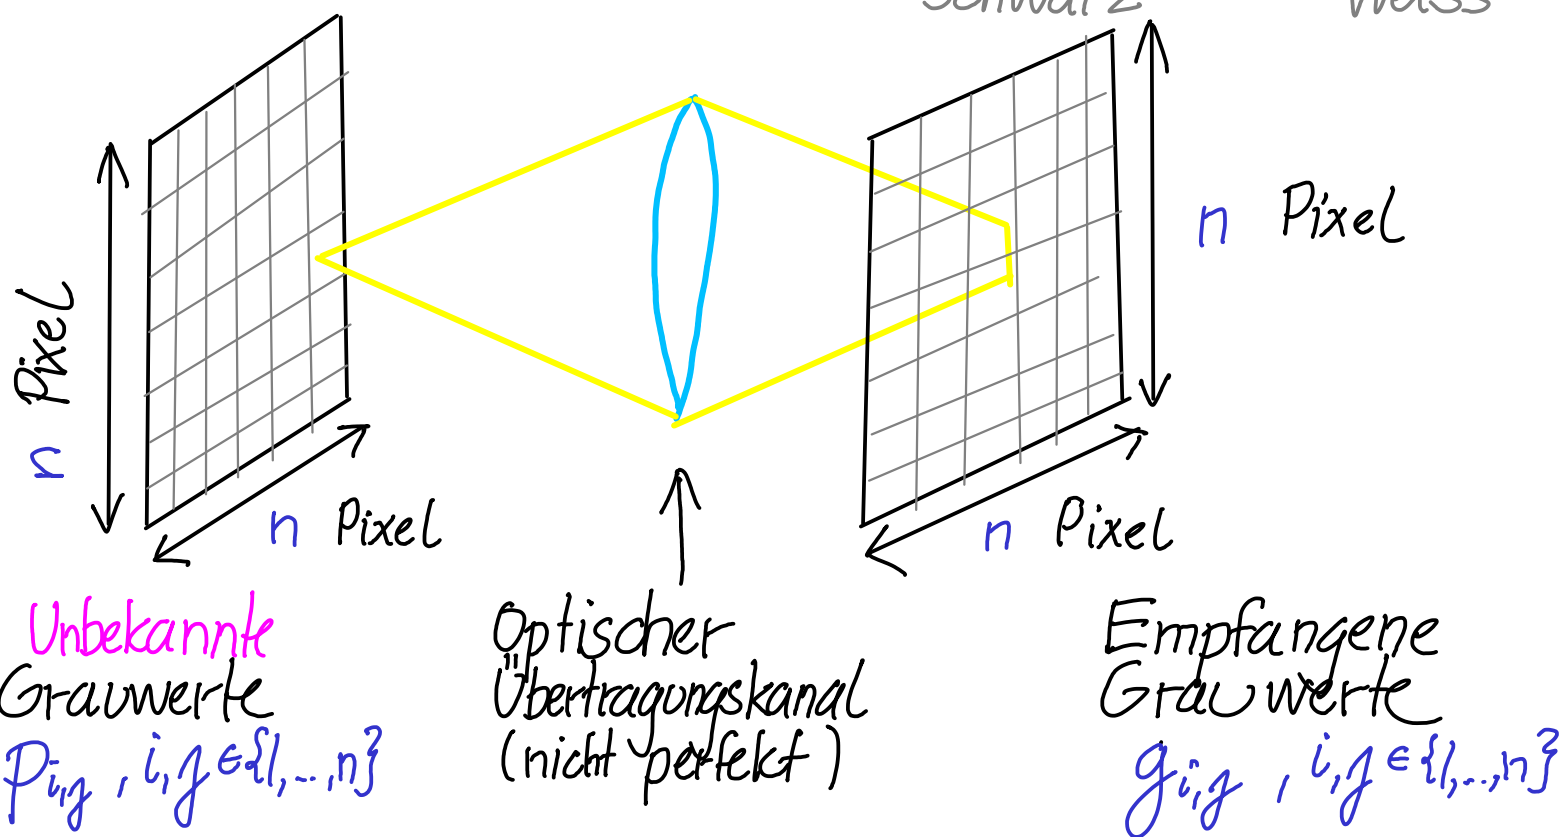 Schwarz Weiss
n Pixel
n Pixel
n Pixel
n Pixel
Unbekannte
Grauwerte
p_{i,j}, i,j ∈ {1,...,n}
Optischer
Übertragungskanal
(nicht perfekt)
Empfangene
Grauwerte
g_{i,j}, i,j ∈ {1,...,n}